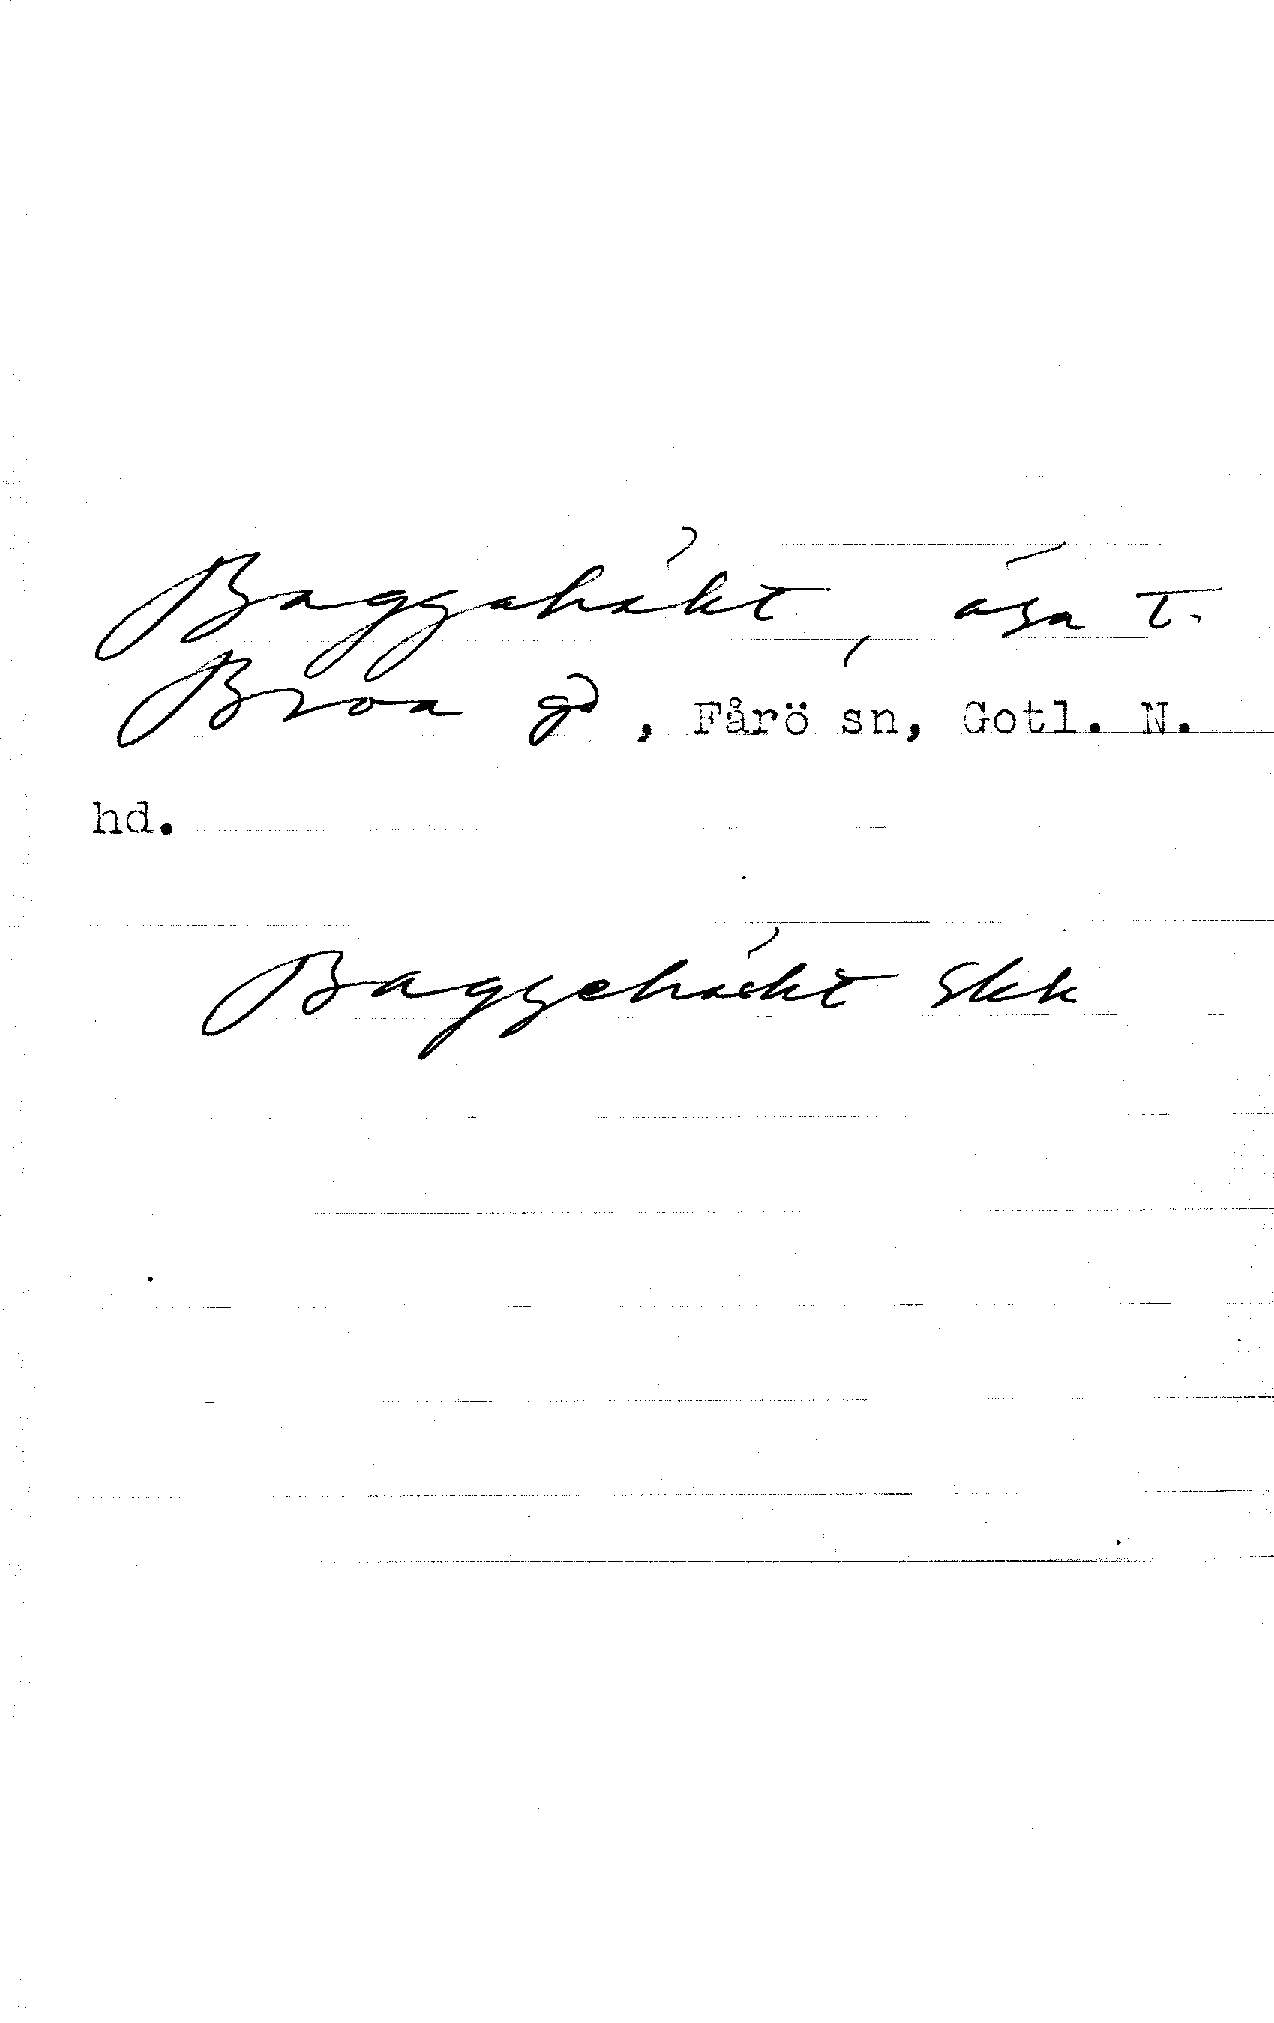 Baggahåkt, äga t.
Broa gd, Fårö sn, Gotl. N.
hd.
Baggehåckt Skk